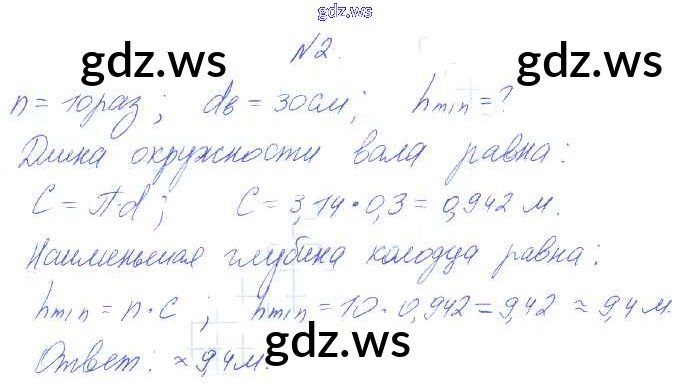 gdz.ws
№2.
gdz.ws gdz.ws
n = 10 раз; dв = 30 см; hmin = ?
Длина окружности вала равна:
C = П·d; C = 3,14 · 0,3 = 0,942 м.
Наименьшая глубина колодца равна:
hmin = n · C; hmin = 10 · 0,942 = 9,42 ≈ 9,4 м.
Ответ: ≈ 9,4 м.
gdz.ws gdz.ws